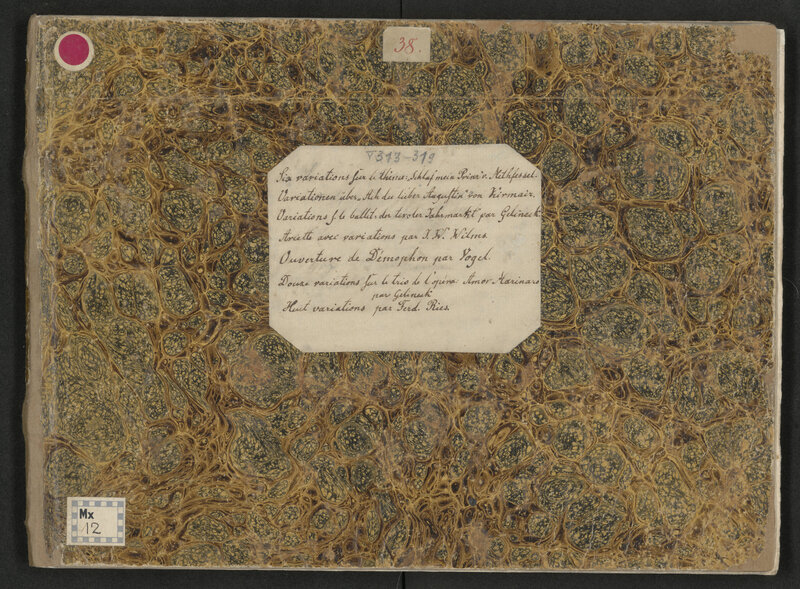 38.
V 313-319
Six variations sur le thème: Schlaf mein Prinz v. Methfessel.
Variationen über „Ach du lieber Augustin" von Kirmair.
Variations s. le ballet: der tiroler Jahrmarkt par Gelineck
Ariette avec variations par J. W. Wilms.
Ouverture de Démophon par Vogel.
Douze variations sur le trio de l'opéra: Amor Marinaro
par Gelineck
Huit variations par Ferd. Ries.
Mx
12